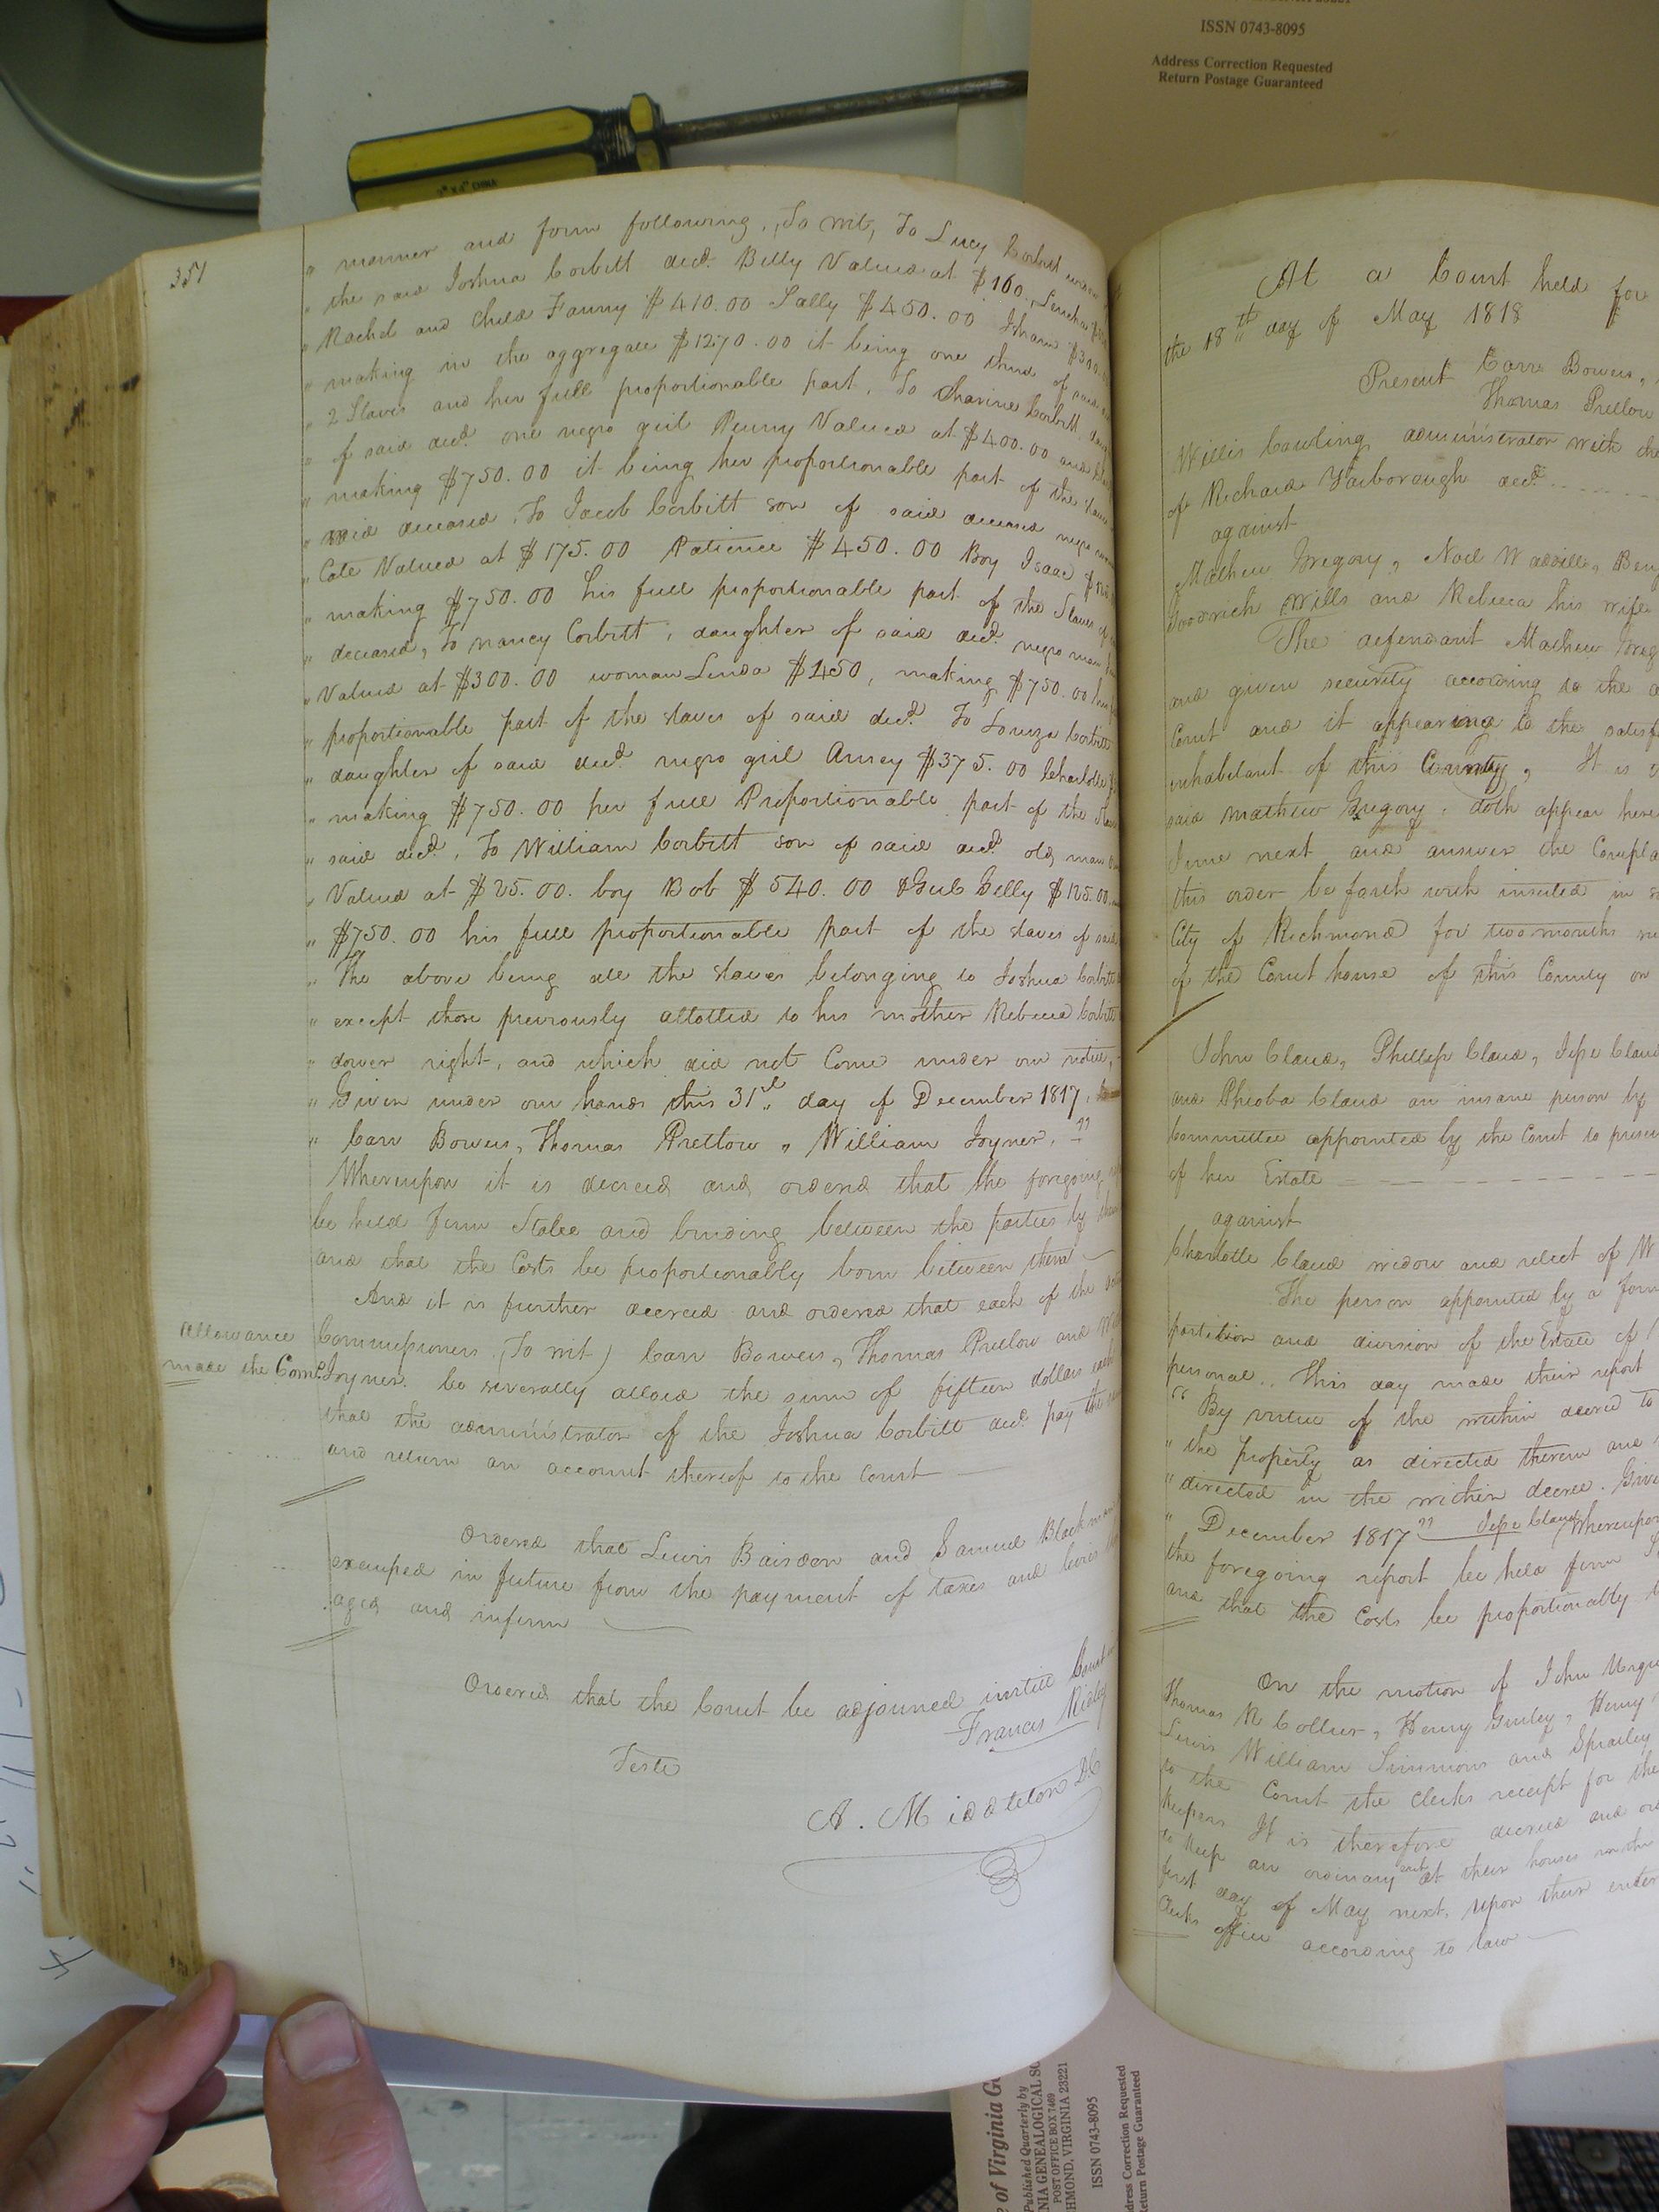 ISSN 0743-8095
Address Correction Requested
Return Postage Guaranteed
351
" manner and form following, To wit, To Lucy Corbitt
" the said Joshua Corbitt decd. Billy Valued at $160.
" Rachel and Child Fanny $410.00 Sally $450.00 Isham $300.
" making in the aggregate $1270.00 it being one third of
" 2 Slaves and her full proportionable part. To Charine Corbitt
" of said decd. one negro girl Penny Valued at $400.00 and
" making $750.00 it being her proportionable part of the
" said deceased, To Jacob Corbitt son of said deceased negro
" Cate Valued at $175.00 Patience $450.00 Boy Isaac
" making $750.00 his full proportionable part of the Slaves of
" deceased, To Nancy Corbitt, daughter of said decd. negro man
" Valued at $300.00 woman Linda $450, making $750.00 her
" proportionable part of the slaves of said decd. To Louiza Corbitt
" daughter of said decd. negro girl Anney $375.00 Charlotte
" making $750.00 her full Proportionable part of the
" said decd. To William Corbitt son of said decd. old man
" Valued at $25.00. boy Bob $540.00 & Girl Gelly $125.00
" $750.00 his full proportionable part of the slaves of said
" The above being all the slaves belonging to Joshua Corbitt
" except those previously allotted to his mother Rebecca Corbitt
" dower right, and which did not Come under our notice,
" Given under our hands this 31st day of December 1817,
" Carr Bowers, Thomas Pretlow, William Joyner. "
Whereupon it is decreed and ordered that the foregoing
be held firm Stable and binding between the parties by
and that the Costs be proportionably born between them
And it is further decreed and ordered that each of the
Allowance
made the Comrs.
Commissioners (To wit) Carr Bowers, Thomas Pretlow and
Joyner. be severally allowed the sum of fifteen dollars each
that the administrator of the Joshua Corbitt decd. pay the
and return an account thereof to the Court
Ordered that Lewis Baisden and Samuel Blackman
exemped in future from the payment of taxes and
aged and infirm
Ordered that the Court be adjourned untill Court in
Francis Ridley
Teste
A. Middleton DC
At a Court held for
the 18th day of May 1818
Present Carr Bowers,
Thomas Pretlow
Willis Cowling administrator with the
of Richard Yarborough decd.
against
Mathew Gregory, Noel Waddill,
Goodrich Wills and Rebecca his wife
The defendant Mathew
and given security according to the
Court and it appearing to the
inhabitant of this County, It is
said Mathew Gregory. doth appear here
June next and answer the
this order be forth with inserted in
City of Richmond for two months
of the Court house of this County on
John Claud, Phillip Claud, Jesse Claud
and Phioba Claud an insane person by
Committee appointed by the Court to
of her Estate
against
Charlotte Claud widow and relict of W
The person appointed by a form
partition and division of the Estate of
personal. This day made their report
" By virtue of the within decree to
" the property as directed therein and
" directed in the within decree. Given
" December 1817 " Jesse Claud Whereupon
the foregoing report be held firm
and that the Costs be proportionally
On the motion of John
Thomas R Collier, Henry Gurley, Henry
Lewis William Simmons and Spratley
to the Court the Clerks receipt for the
Keepers It is therefore decreed and
to keep an ordinary each at their houses
first day of May next, upon their
Clerks office according to law
of Virginia
Published Quarterly by
POST OFFICE BOX 7469
VIRGINIA 23221
ISSN 0743-8095
Address Correction Requested
Return Postage Guaranteed